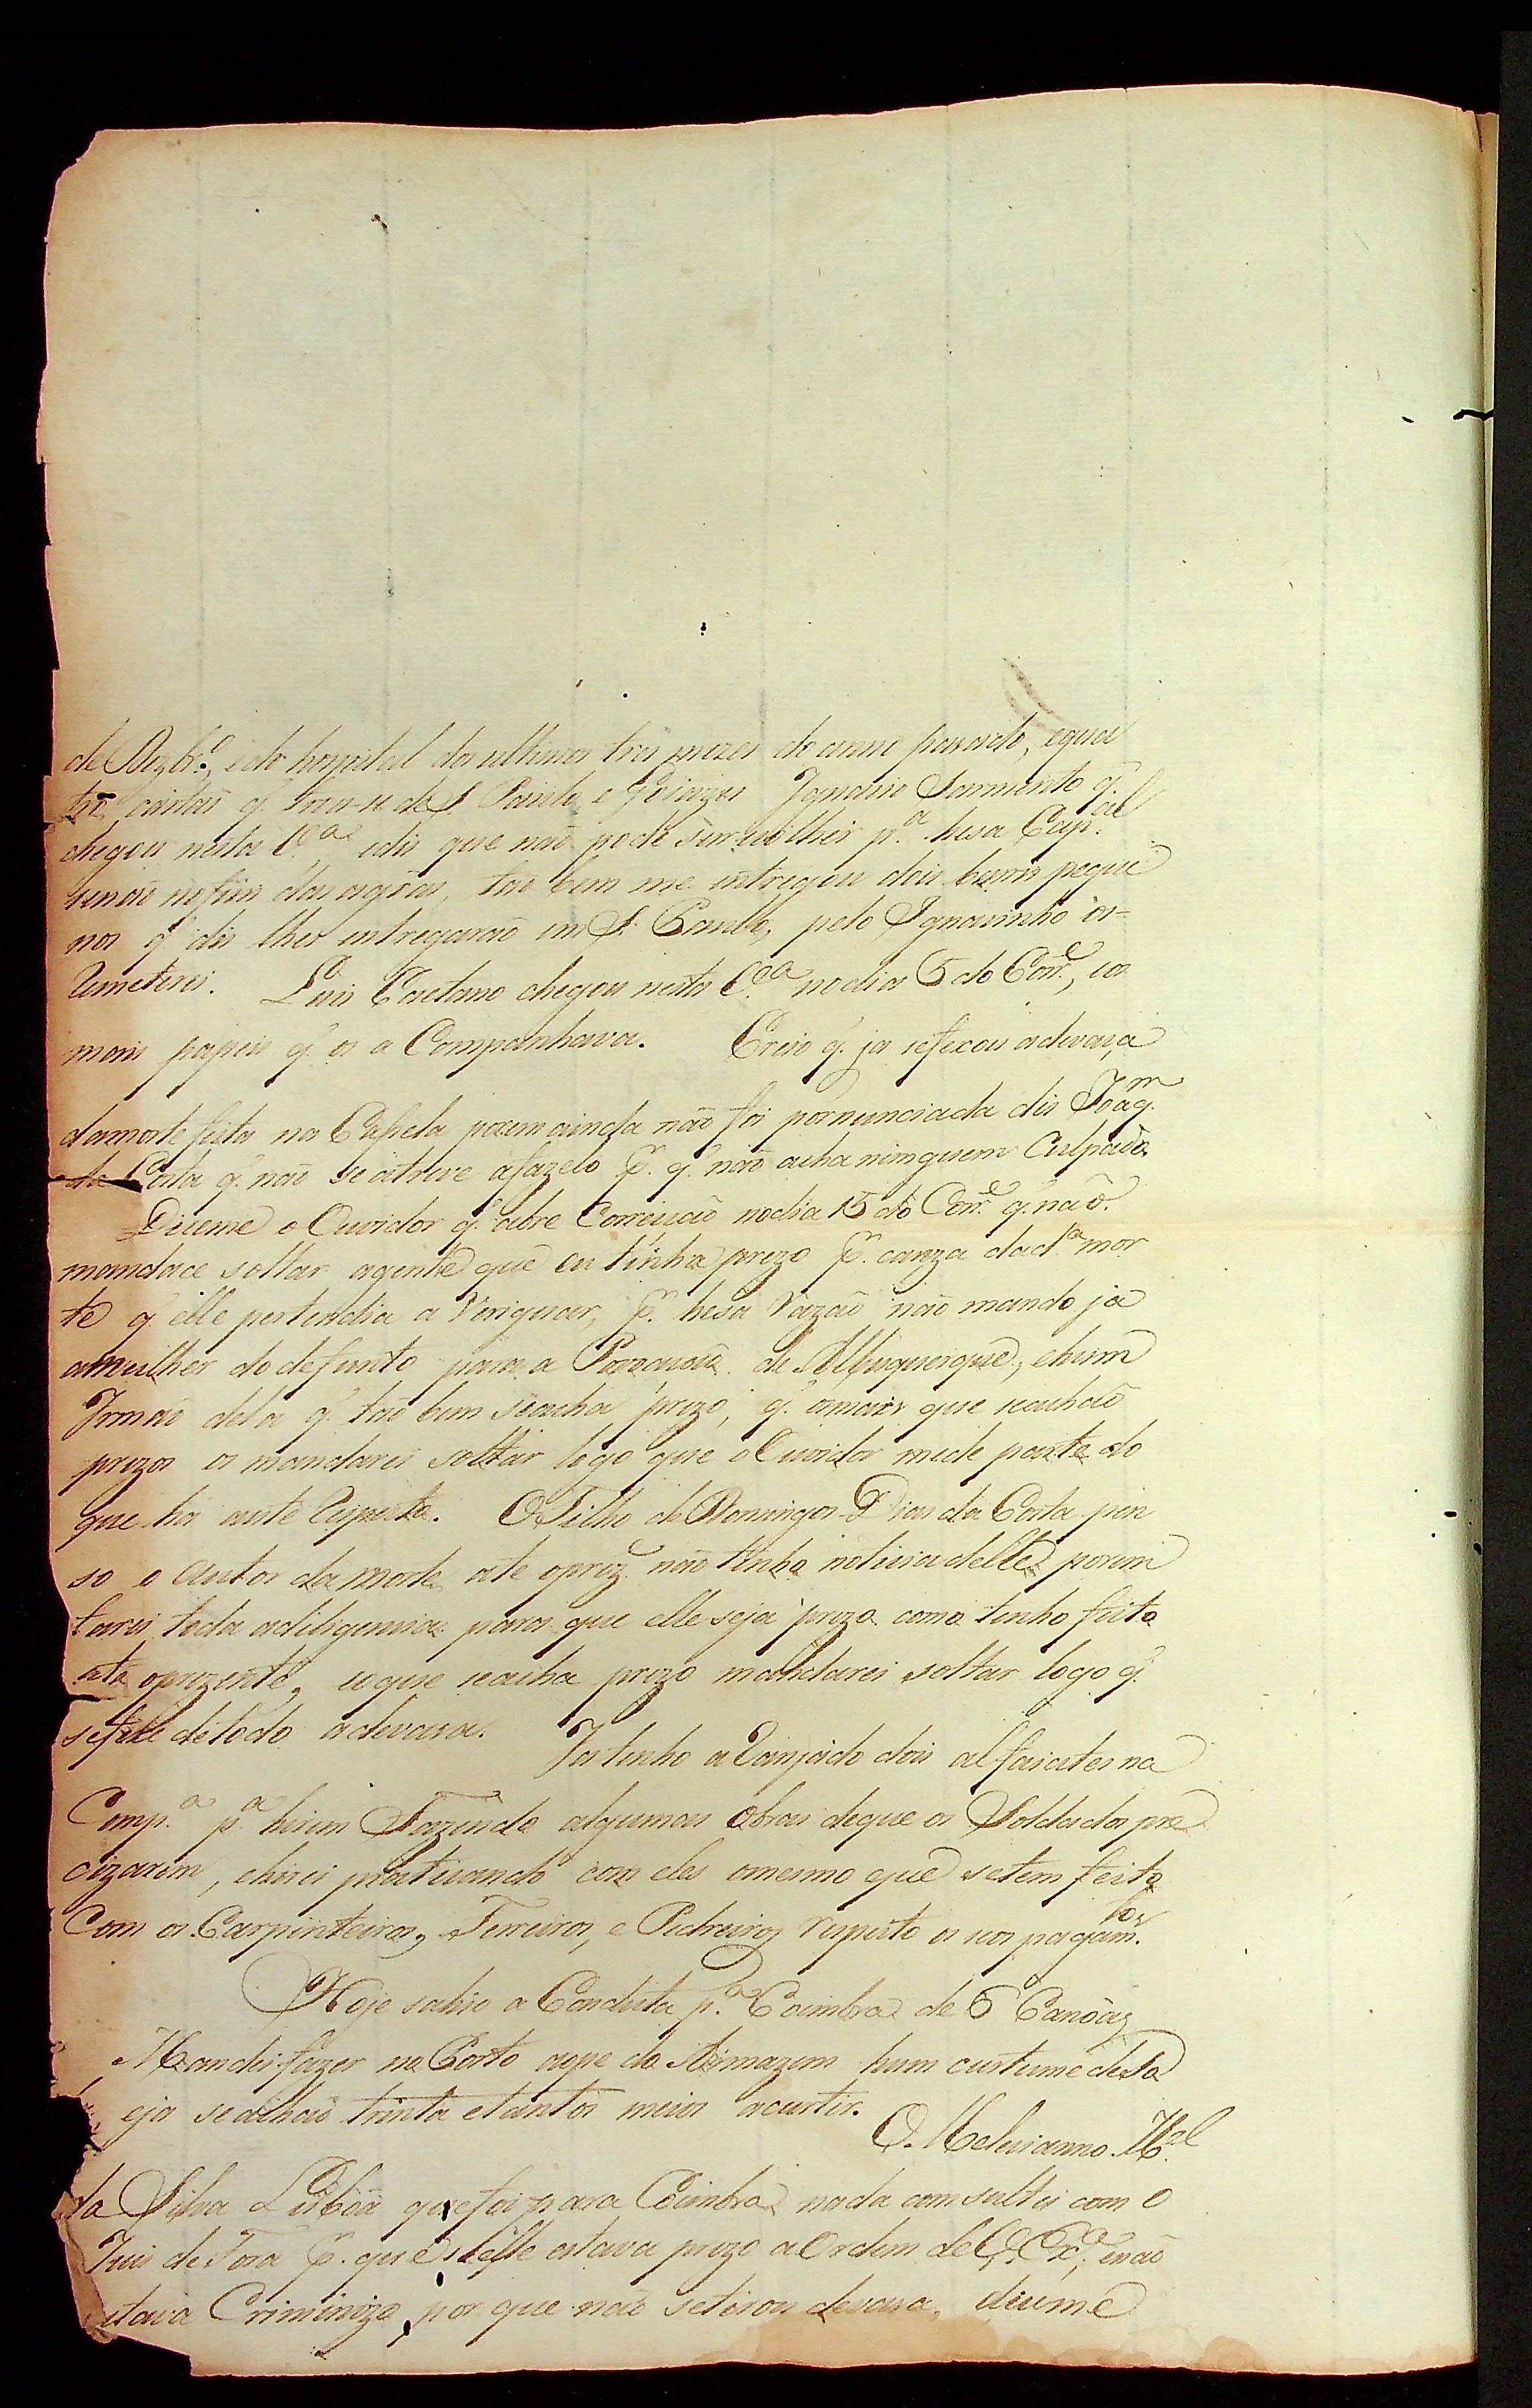 de Dezbr.º, e do hospital dos ultimos tres mezes do anno pasado, equa
tro cartas q. troce-u de S. Paulo, e Goiazes Ignacio Sarmento q.
chegou nesta V.ª, edis que não pode sirricolher p.ª hesa Cap.al
senão nofim das agoas, tão bem me intregou dois barris peque
nos q' dis lhes intregarão em S. Paulo, pelo Ignacinho os-
Remeterei. Luis Caetano chegou nesta V.ª nodia 5 do Corr.e, eos
mais papeis q' os a Companhava. Creio q. ja sefixou adevaça
damorte feita na Capela porem ainda não foi pornunciada dis Joaq.m
da Costa q. não se atreve afazelo p.r q' não acha nimguem Culpado.
Diceme o Ouvidor q. abre Correição nodia 15 do Corr.e q. não
mandace soltar agente que eu tinha prezo p.r cauza dad.ª mor
te q. elle pertendia a Veriguar, p.r hesa Razão não mando ja
amulher do defunto para a Povoacão de Albuquerque, ehum
Irmão dela q. tão bem seacha prezo, q. omais que seachão
prezos os mandarei soltar logo que o Ouvidor mede parte do
que ha aeste Respeito. O Filho de Domingos Dias da Costa pen
so o autor da morte, ate oprez.e não tinha noticia delle, porem
farei toda adiligencia para que elle seja prezo como tenho feito
ate oprezente, eoque seacha prezo mandarei soltar logo q.
sefexe detodo adevaca. Ja tenho a Ranjado dois alfaiates na
Comp.ª p.ª hirem Fazendo algumas obras deque os Soldados pre
cizarem, ehirei praticando com eles omesmo que setem feito
Com os Carpinteiros, Ferreiros, e Pedreiros Respeito os seos pagam.tos
Hoje sahio a Conduta p.ª Coimbra de 6 Canôas
Mandei fazer no Porto aope do Armazem hum curtume desola
eja seachão trinta etantos meios acurtir.
O Meliciano M.el
da Silva Lisbôa que foi para Coimbra nada comsultei com o
Juis de Fora p.r que elle estava prezo a Ordem de V. Ex.ª, enão
estava Criminozo, por que não setirou devasa, diceme